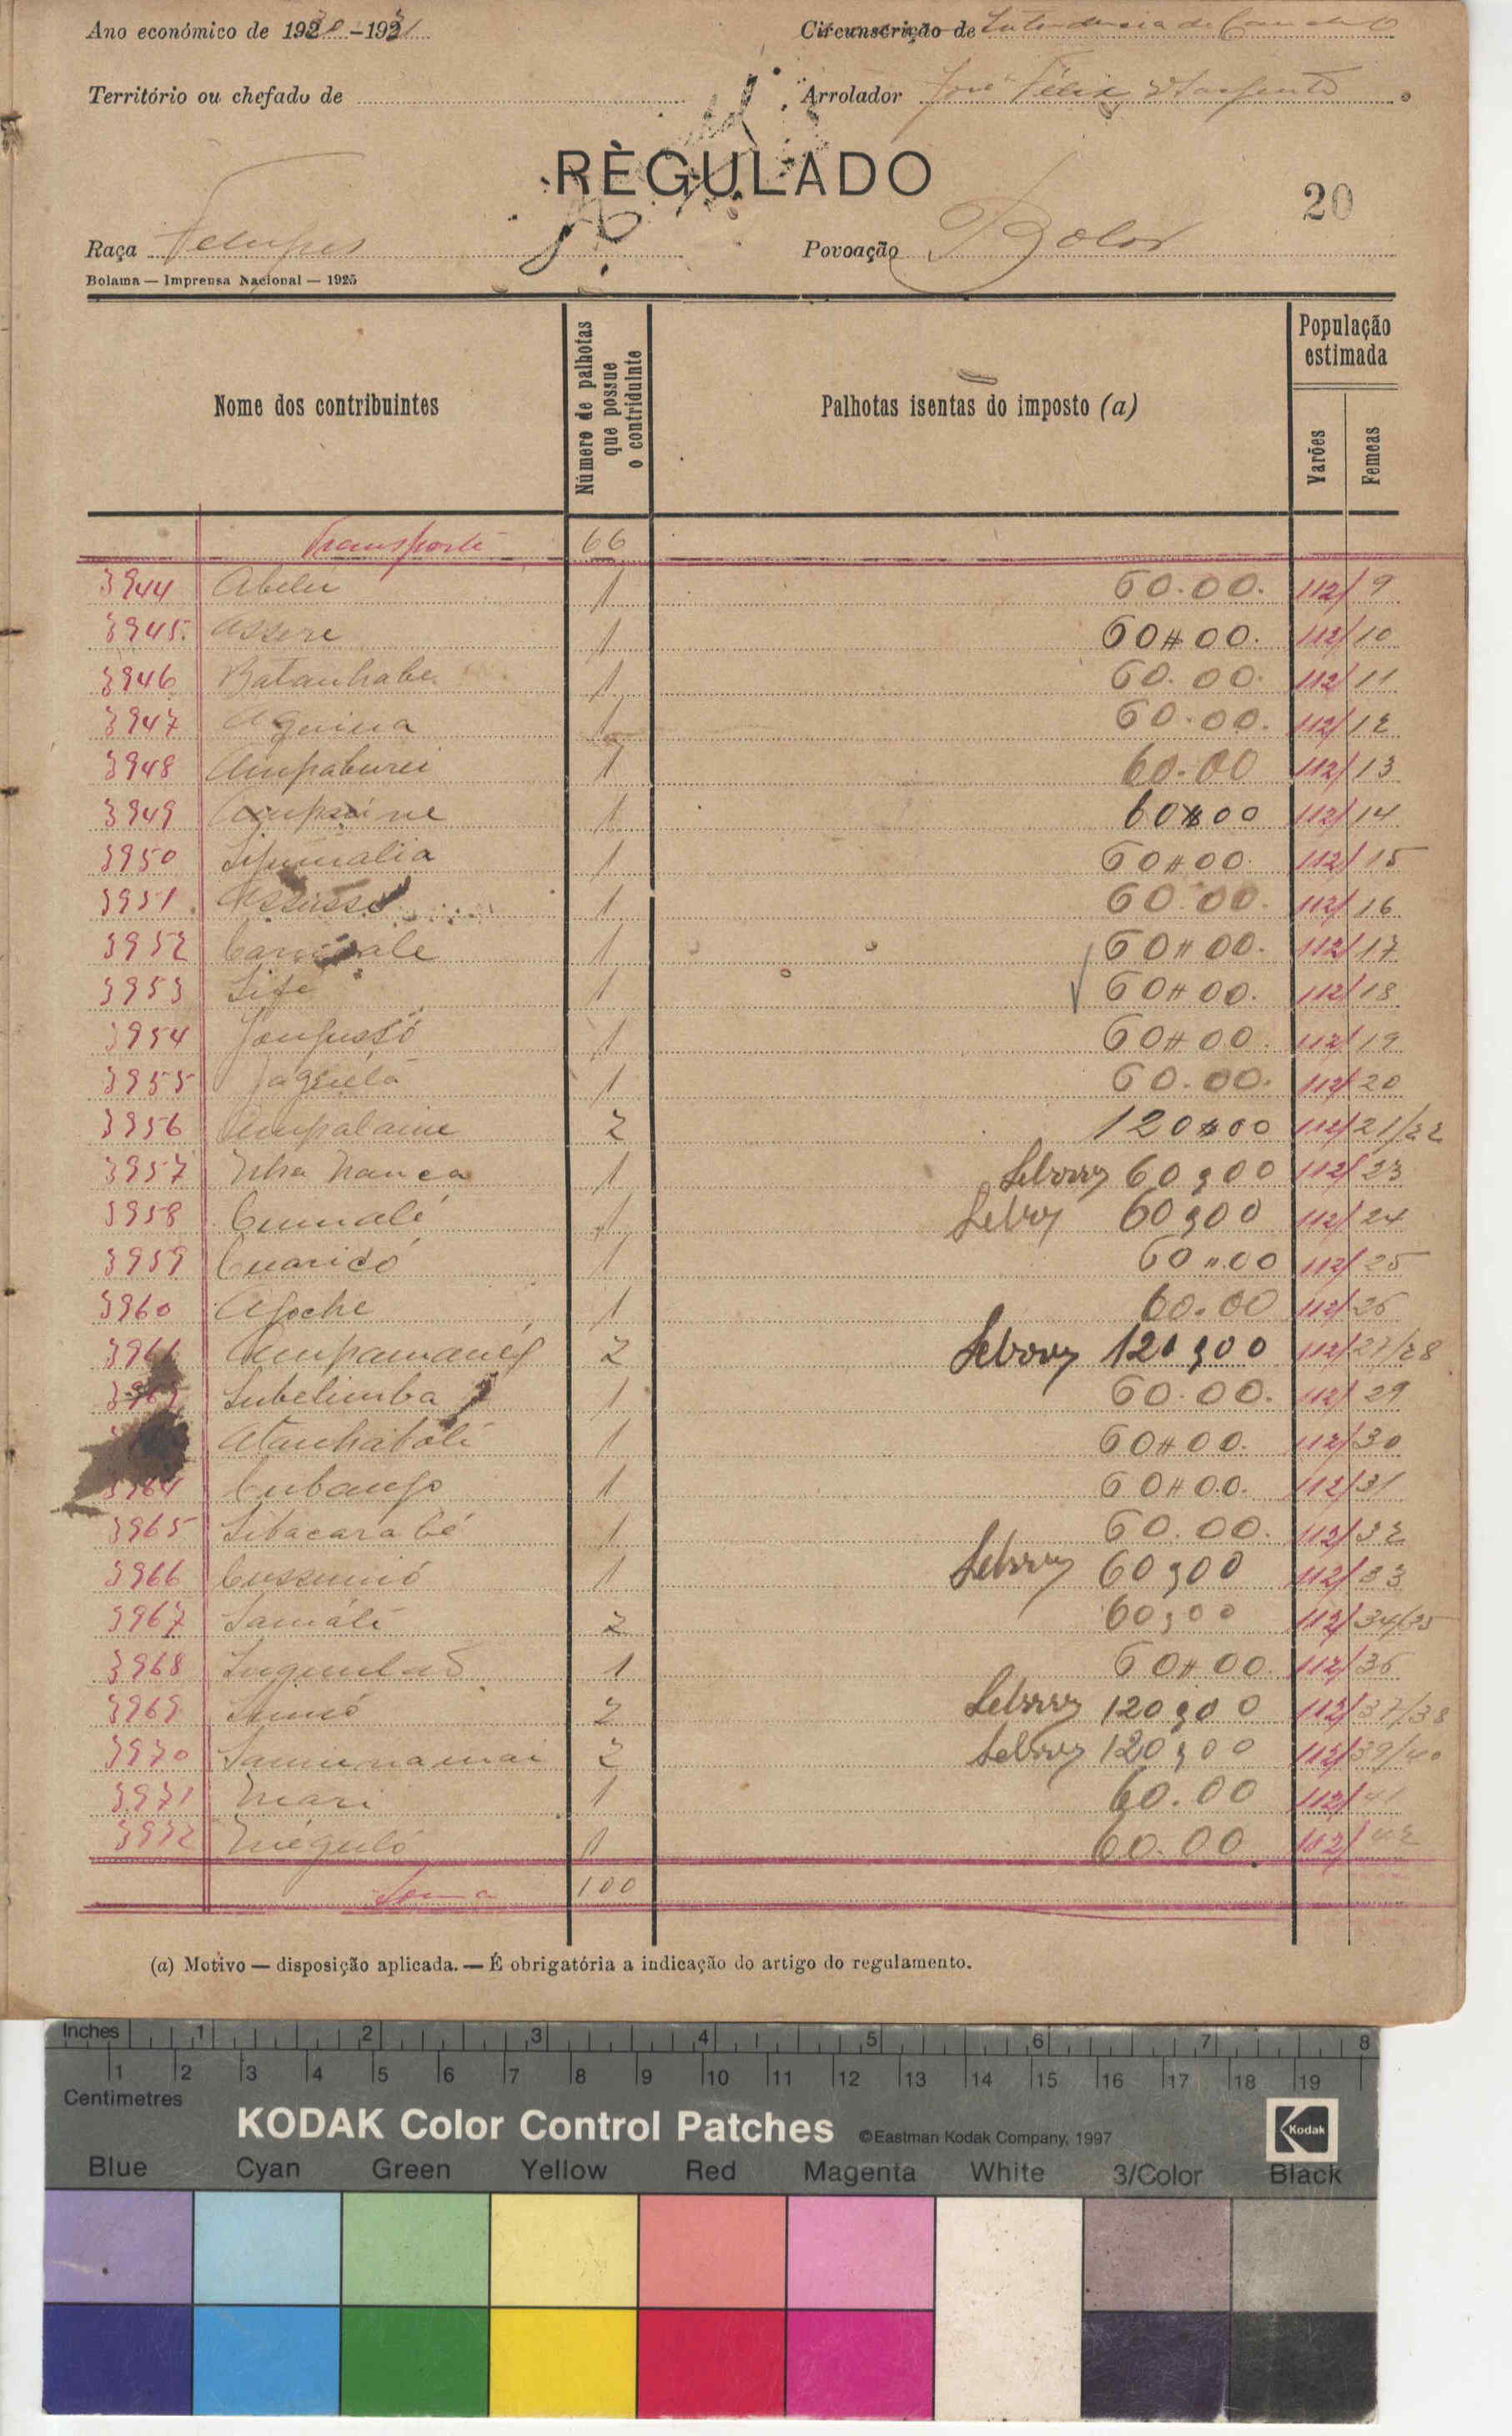 Ano económico de 1930-1931
Circunscrição de Intendencia de
Território ou chefado de
Arrolador José Félix
RÈGULADO
20
Raça Felupes
Povoação Bolor
Bolama — Imprensa Nacional — 1925
Nome dos contribuintes
Número de palhotas que possue o contriduinte
Palhotas isentas do imposto (a)
População estimada
Varões
Femeas
Transporte 66
3944 Abelei 1 60.00. 112/ 9
3945. Assere 1 60#00. 112/ 10
3946 Batanhabe 1 60.00. 112/ 11
3947 Aguina 1 60.00. 112/ 12
3948 Ampaburei 1 60.00 112/ 13
3949 1 60$00 112/ 14
3950 1 60#00. 112/ 15
3951. 1 60.00. 112/ 16
3952 1 60#00. 112/ 17
3953 Life 1 60#00. 112/ 18
3954 1 60#00. 112/ 19
3955 1 60.00. 112/ 20
3956 Ampalaine 2 120$00 112/ 21/22
3957 Nha Nanca 1 60$00 112/ 23
3958 Cumalé 1 60$00 112/ 24
3959 Cuaridó 1 60"00 112/ 25
3960 Apoche 1 60.00 112/ 26
3961 2 120$00 112/ 27/28
Subelimba 1 60.00. 112/ 29
Atanhaboli 1 60#00. 112/ 30
3964 1 60#00. 112/ 31
3965 Sibacarabé 1 60.00. 112/ 32
3966 Cussumó 1 60$00 112/ 33
3967 Samáli 2 60$00 112/ 34/35
3968 1 60#00. 112/ 36
3969 2 120$00 112/ 37/38
3970 Samunamai 2 120$00 112/ 39/40
3971 Mari 1 60.00 112/ 41
3972 1 60.00 112/ 42
Soma 100
(a) Motivo — disposição aplicada. — É obrigatória a indicação do artigo do regulamento.
Inches 1 2 3 4 5 6 7 8
1 2 3 4 5 6 7 8 9 10 11 12 13 14 15 16 17 18 19
Centimetres
KODAK Color Control Patches ©Eastman Kodak Company, 1997 Kodak
Blue Cyan Green Yellow Red Magenta White 3/Color Black